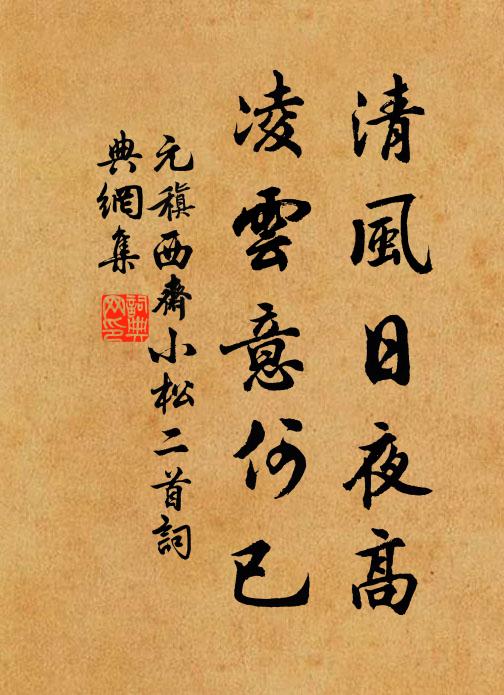 清風日夜高
凌雲意何已
元稹西齋小松二首詞
典網集
詞典網印